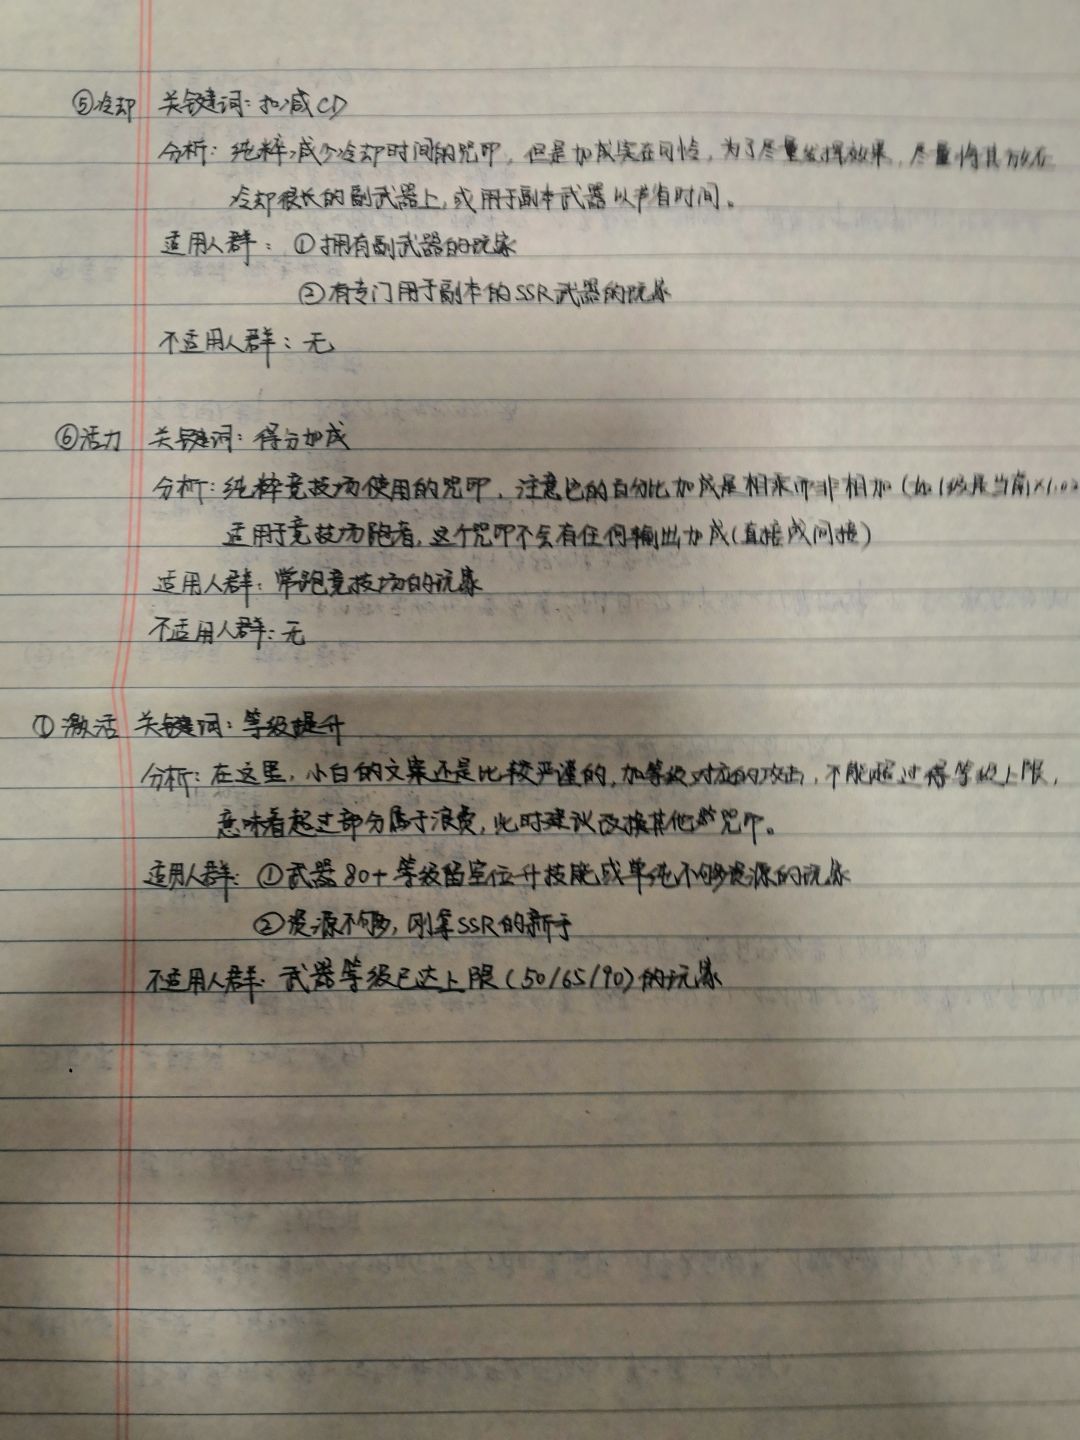 ⑤冷却 关键词：扣减CD
分析：纯粹减少冷却时间的咒印，但是加成实在可怜，为了尽量发挥效果，尽量将其放在
冷却很长的副武器上，或用于副本武器以节省时间。
适用人群：①拥有副武器的玩家
②有专门用于副本的SSR武器的玩家
不适用人群：无
⑥活力 关键词：得分加成
分析：纯粹竞技场使用的咒印，注意它的百分比加成是相乘而非相加（如1级是当前×1.0
适用于竞技场跑者，这个咒印不会有任何输出加成（直接或间接）
适用人群：常跑竞技场的玩家
不适用人群：无
①激活 关键词：等级提升
分析：在这里，小白的文案还是比较严谨的，加等级对应的攻击，不能超过得等级上限，
意味着超过部分属于浪费，此时建议改换其他咒印。
适用人群：①武器80+等级留空位升技能或单纯不够资源的玩家
②资源不够，刚拿SSR的新手
不适用人群：武器等级已达上限（50/65/90）的玩家